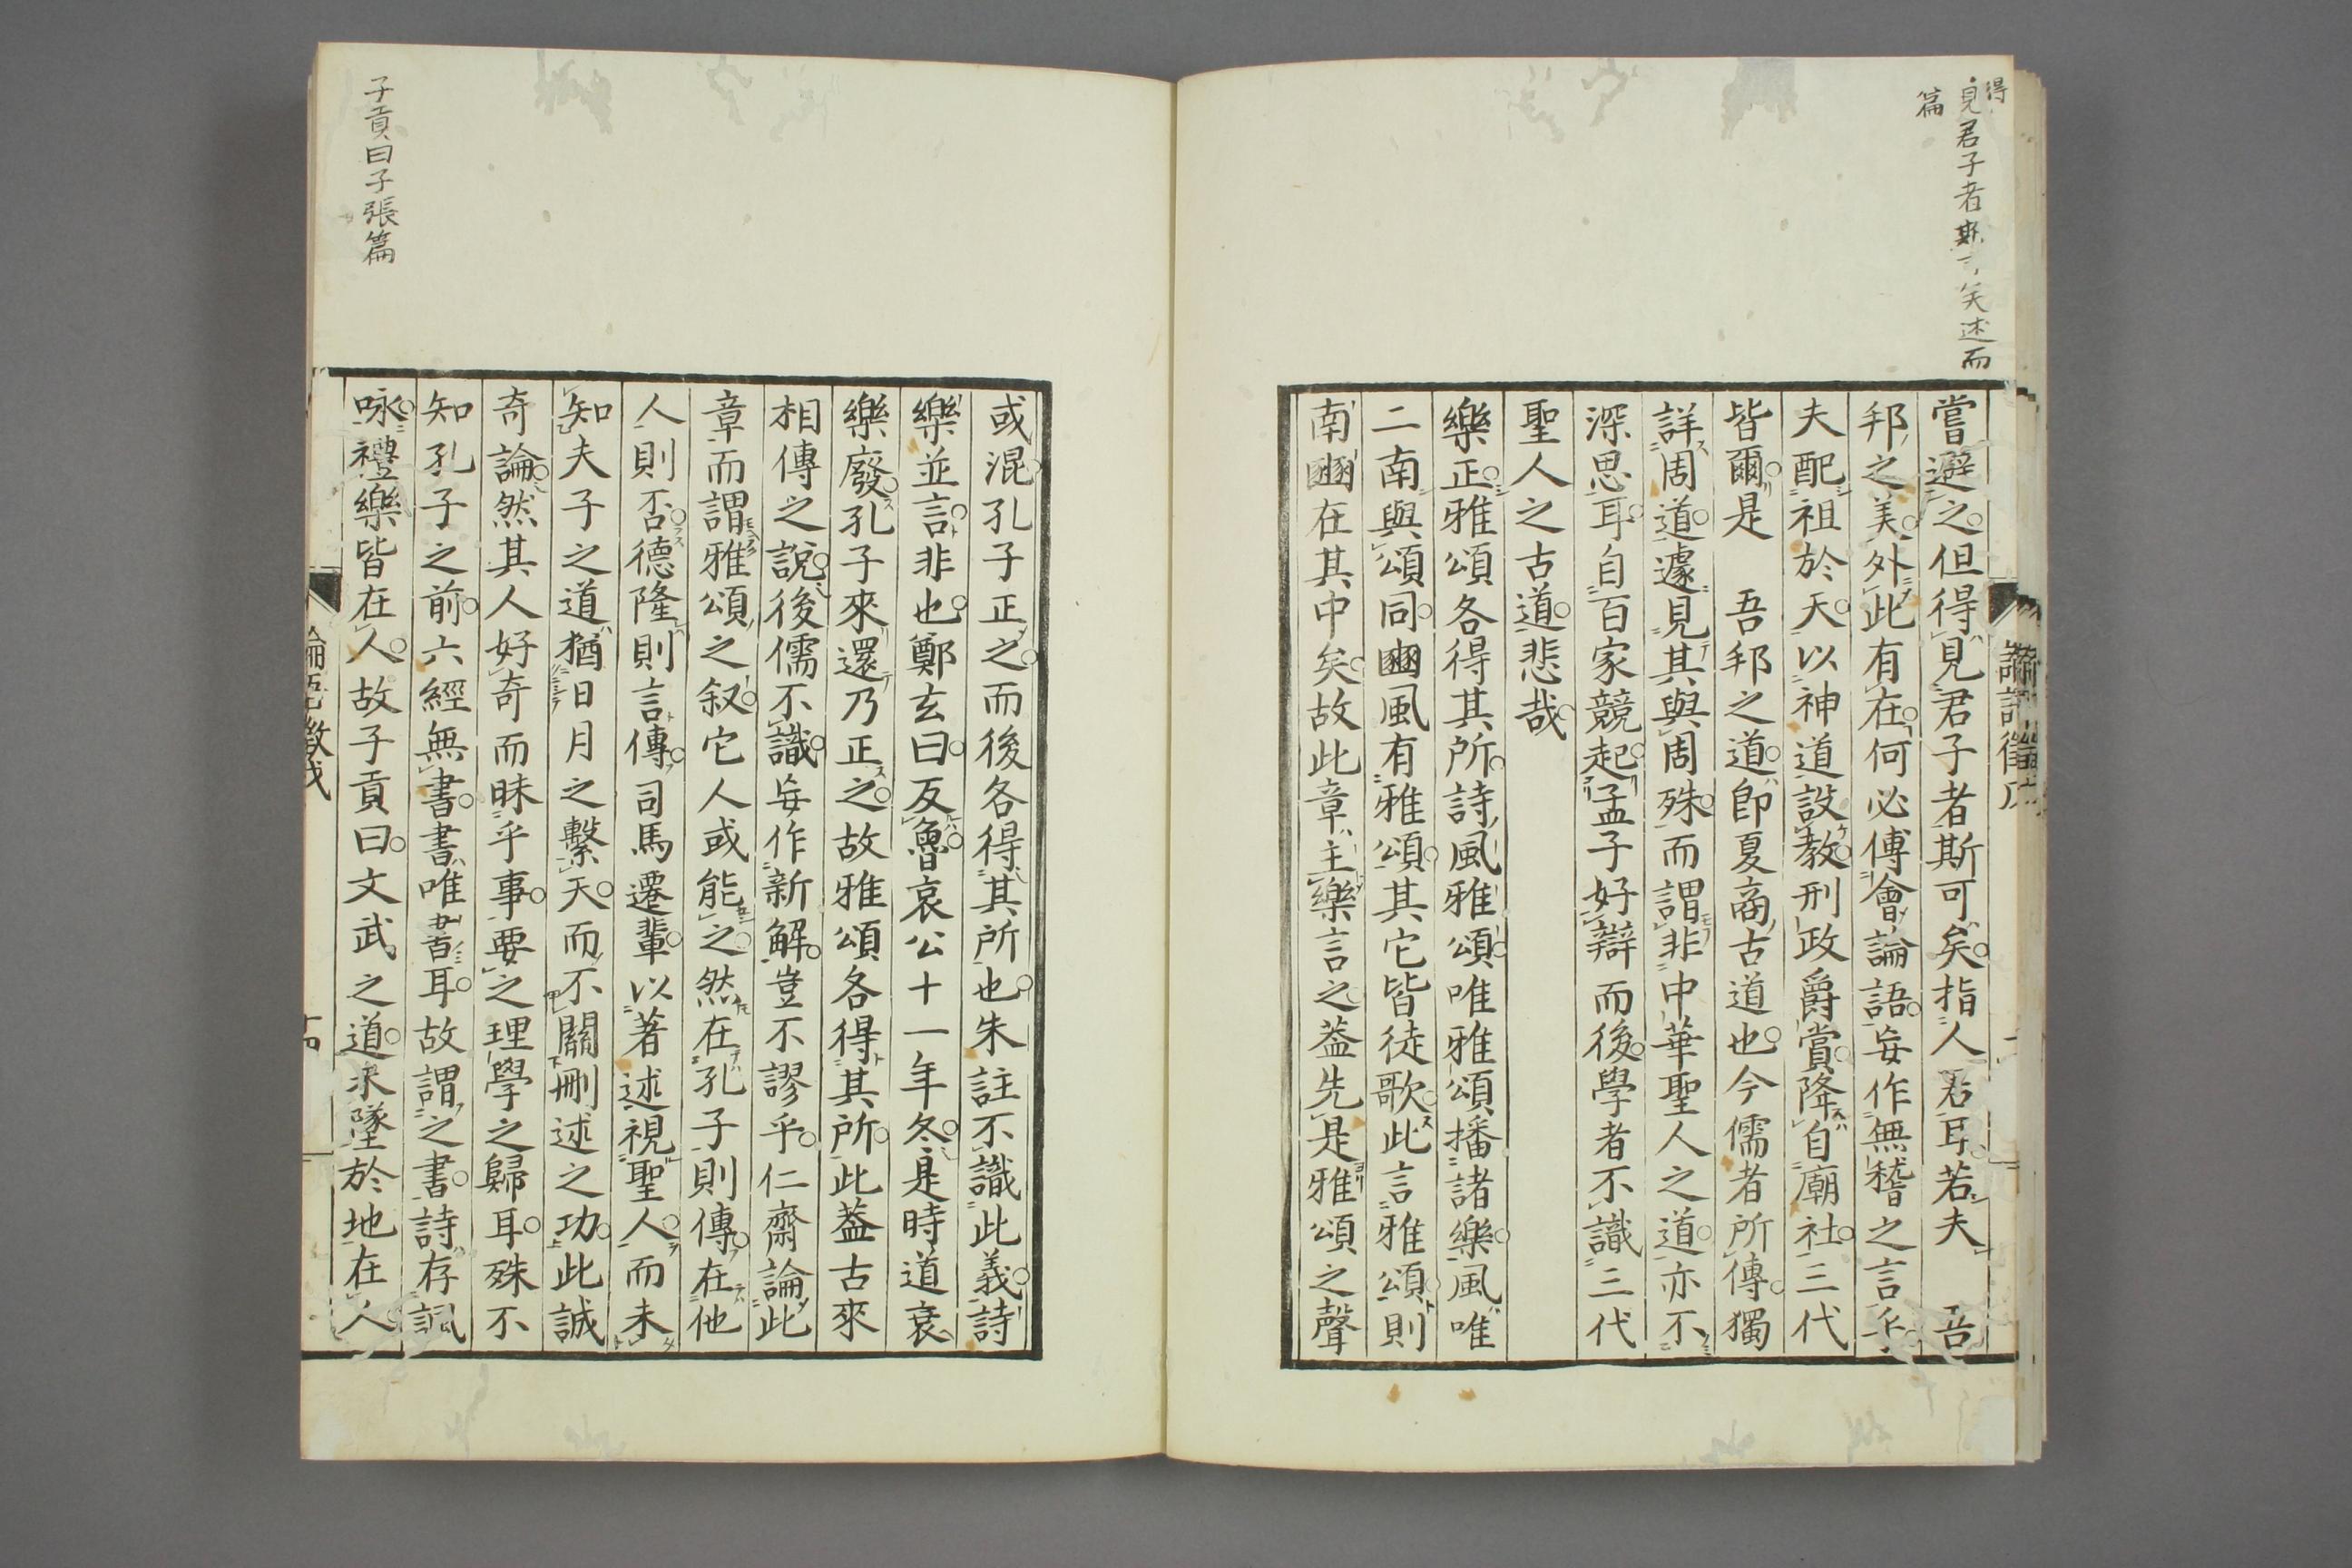 得
見君子者斯可矣述而
篇
嘗避之但得見君子者斯可矣指人君耳若夫　吾
邦之美外此有在何必傅會論語妄作無稽之言乎
夫配祖於天以神道設教刑政爵賞降自廟社三代
皆爾是　吾邦之道卽夏商古道也今儒者所傳獨
詳周道遽見其與周殊而謂非中華聖人之道亦不
深思耳自百家競起孟子好辯而後學者不識三代
聖人之古道悲哉
樂正雅頌各得其所詩風雅頌唯雅頌播諸樂風唯
二南與頌同豳風有雅頌其它皆徒歌此言雅頌則
南豳在其中矣故此章主樂言之蓋先是雅頌之聲
子貢曰子張篇
或混孔子正之而後各得其所也朱註不識此義詩
樂並言非也鄭玄曰反魯哀公十一年冬是時道衰
樂廢孔子來還乃正之故雅頌各得其所此蓋古來
相傳之說後儒不識妄作新解豈不謬乎仁齋論此
章而謂雅頌之叙它人或能之然在孔子則傳在他
人則否德隆則言傳司馬遷輩以著述視聖人而未
知夫子之道猶日月之繫天而不關刪述之功此誠
奇論然其人好奇而昧乎事要之理學之歸耳殊不
知孔子之前六經無書書唯書耳故謂之書詩存諷
咏禮樂皆在人故子貢曰文武之道未墜於地在人
論語徵戊
十四